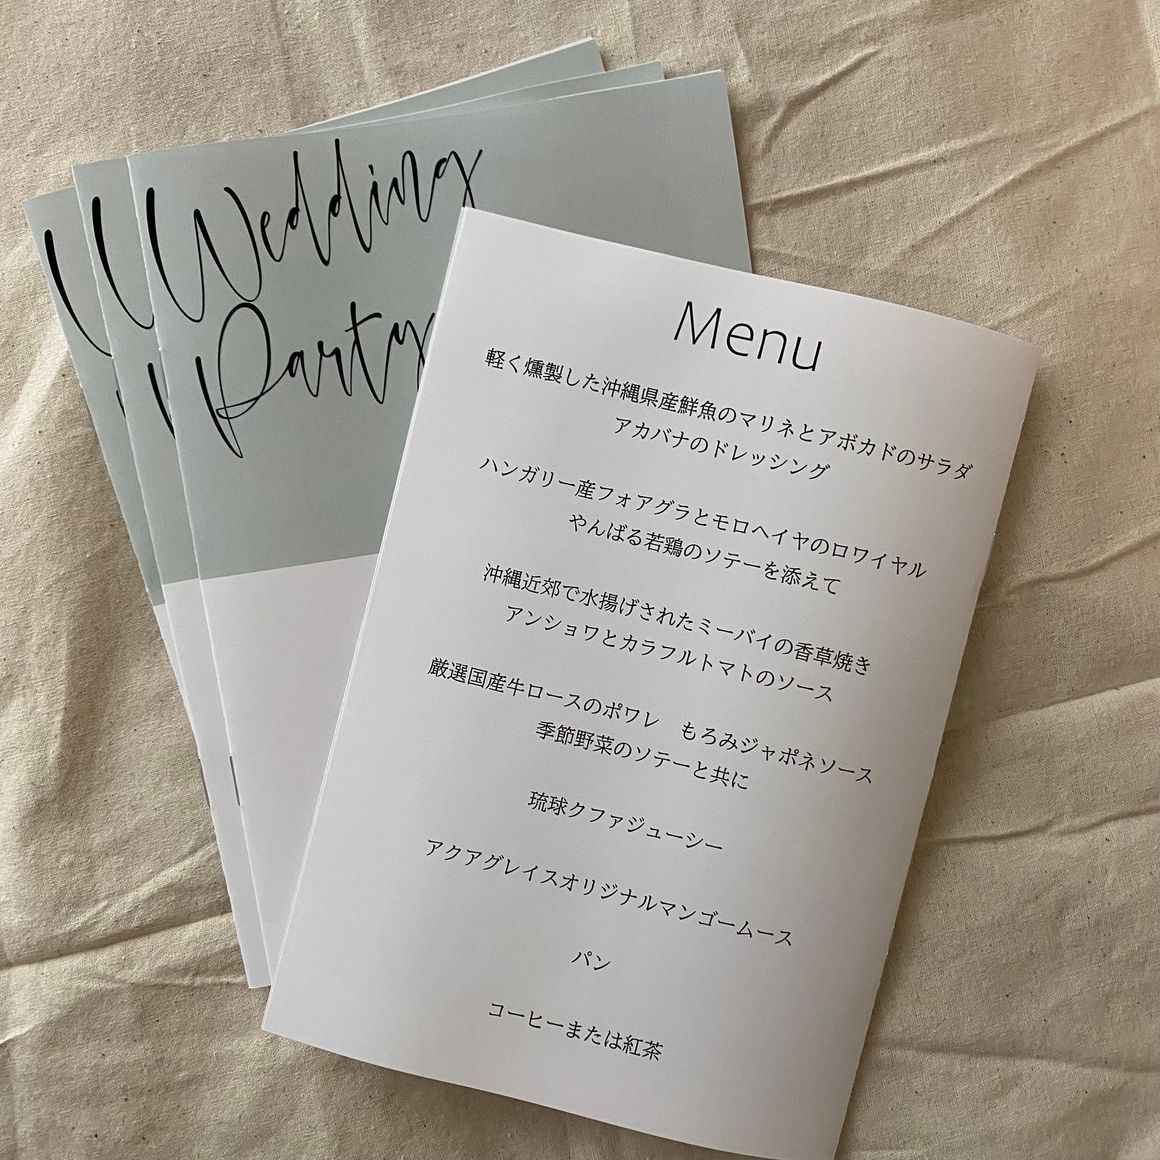 Wedding
Party
Menu
軽く燻製した沖縄県産鮮魚のマリネとアボカドのサラダ
アカバナのドレッシング
ハンガリー産フォアグラとモロヘイヤのロワイヤル
やんばる若鶏のソテーを添えて
沖縄近郊で水揚げされたミーバイの香草焼き
アンショワとカラフルトマトのソース
厳選国産牛ロースのポワレ　もろみジャポネソース
季節野菜のソテーと共に
琉球クファジューシー
アクアグレイスオリジナルマンゴームース
パン
コーヒーまたは紅茶